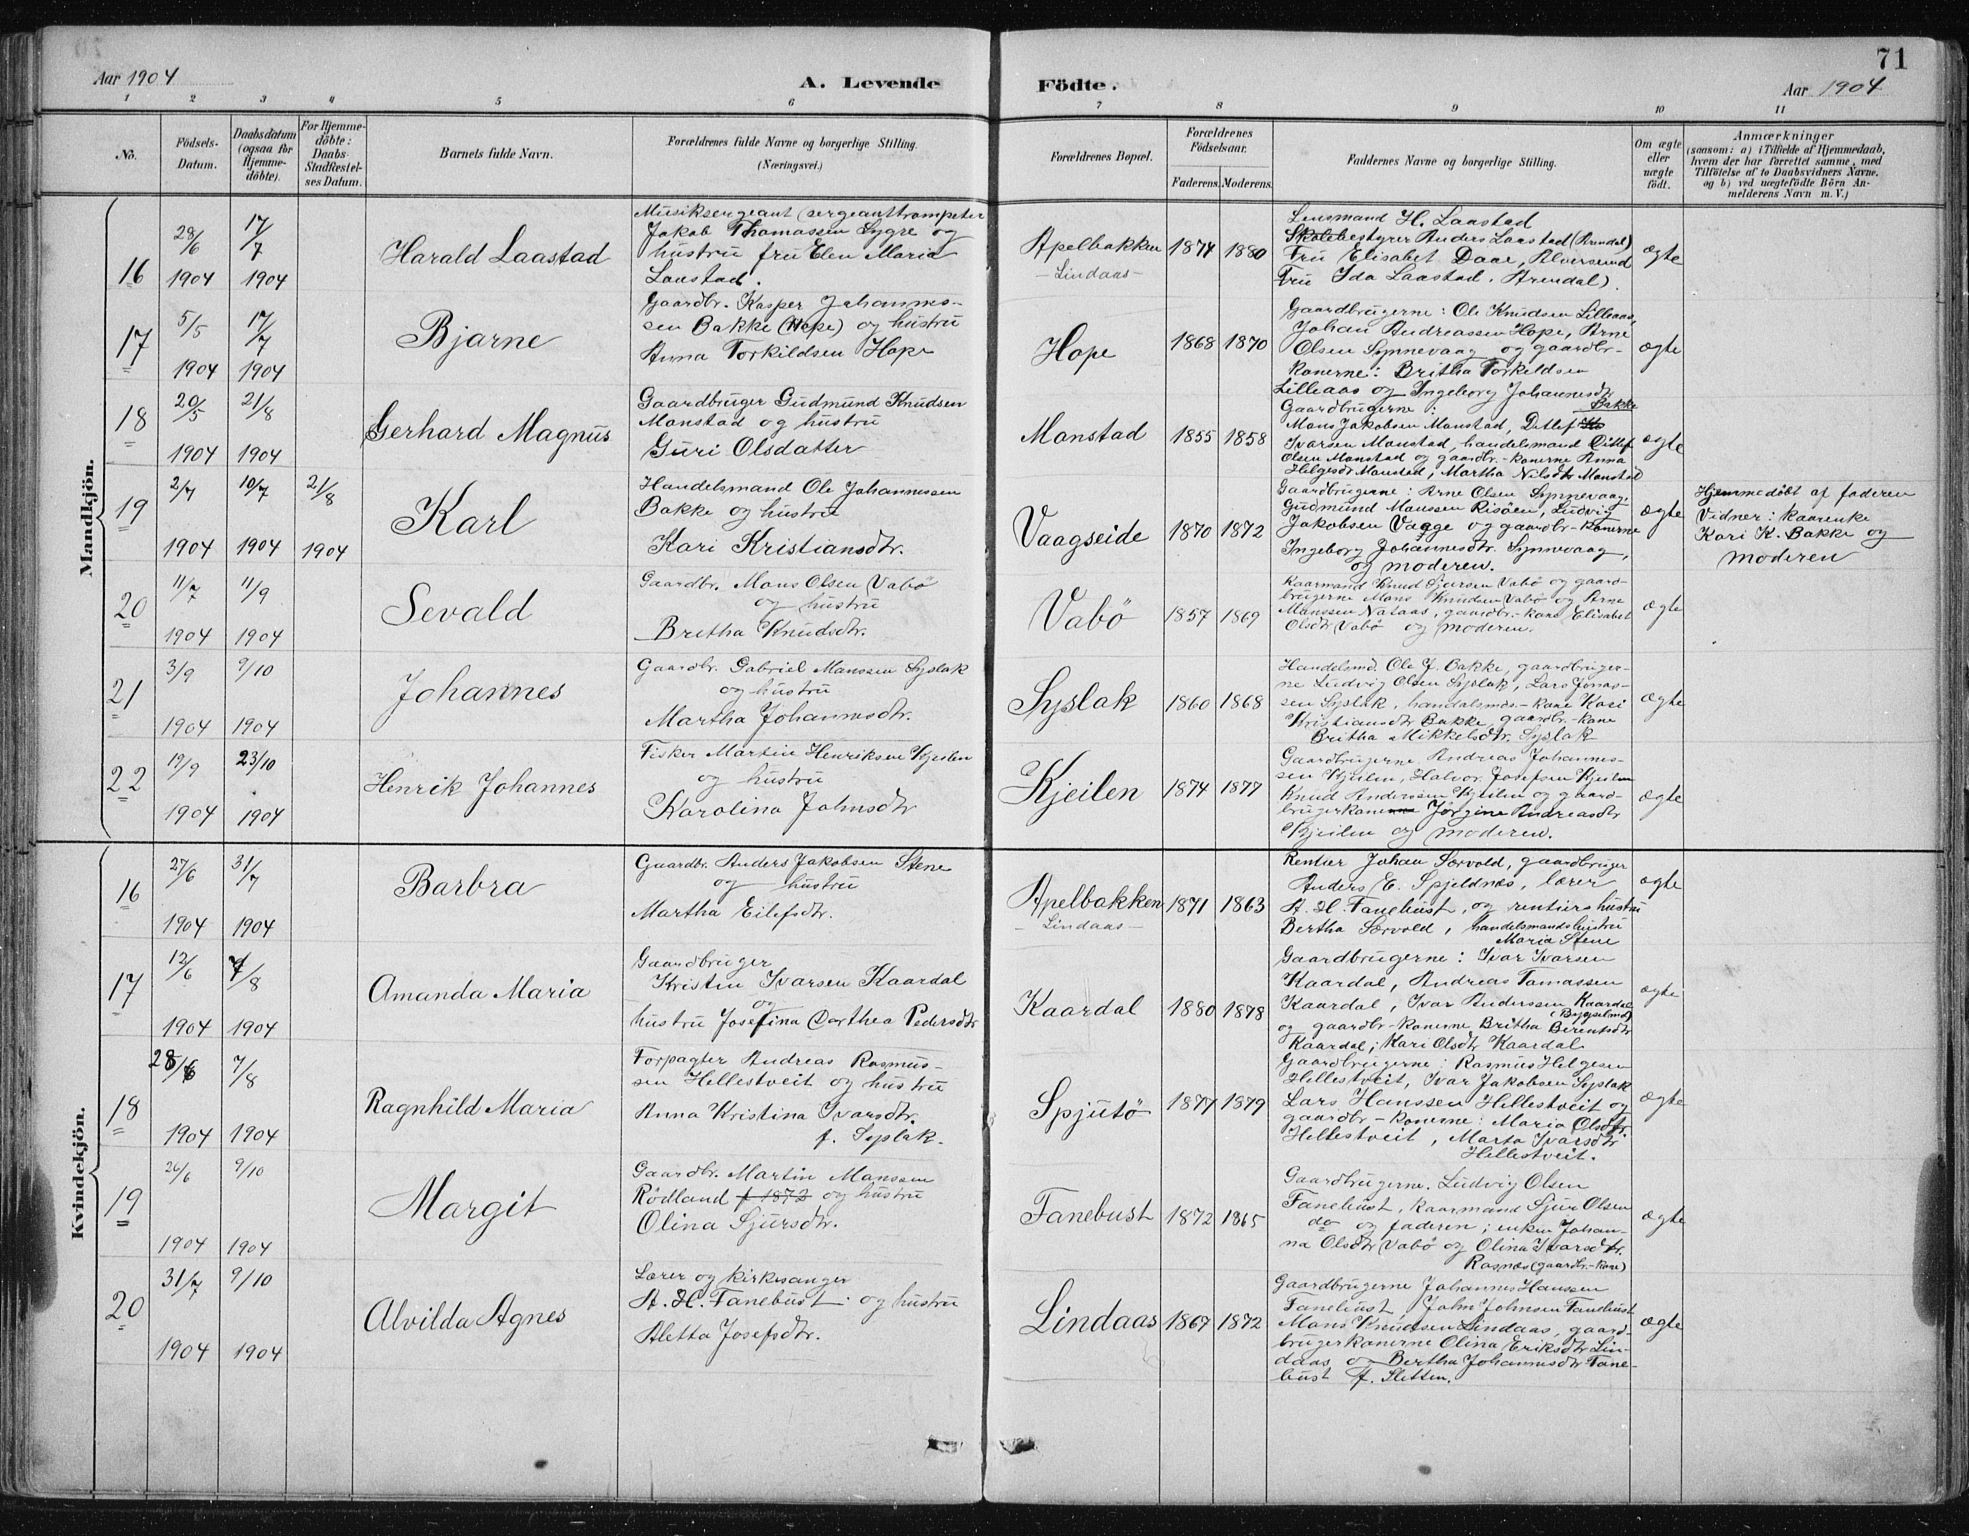 71
Aar 1904
A. Levende
Födte.
Aar 1904
1 2 3 4 5 6 7 8 9 10 11
No.
Födsels-
Datum.
Daabsdatum
(ogsaa for
Hjemme-
döbte).
For Hjemme-
döbte:
Daabs-
Stadfæstel-
ses Datum.
Barnets fulde Navn.
Forældrenes fulde Navne og borgerlige Stilling.
(Næringsvei.)
Forældrenes Bopæl.
Forældrenes
Födselsaar.
Faderens. Moderens.
Faddernes Navne og borgerlige Stilling.
Om ægte
eller
uægte
födt.
Anmærkninger
(saasom: a) i Tilfælde af Hjemmedaab,
hvem der har forrettet samme, med
Tilföielse af to Daabsvidners Navne,
og b) ved uægtefödte Börn An-
melderens Navn m. V.)
Mandkjön.
16
28/6
1904
17/7
1904
Harald Laastad
Musiksergeant (sergeanttrompeter
Jakob Thomassen Sygre og
hustru fru Elen Maria
Laastad.
Apelbakken
- Lindaas -
1874
1880
Lensmand H. Laastad
Skolebestyrer Anders Laastad (Arendal)
Fru Elisabet Daae, Alversund
Fru Ida Laastad, Arendal).
ægte
17
5/5
1904
17/7
1904
Bjarne
Gaardbr. Kasper Johannes-
sen Bakke (Hope) og hustru
Anna Torkildsen Hope
Hope
1868
1870
Gaardbrugerne: Ole Knudsen Lilleaas,
Johan Andreassen Hope, Arne
Olsen Synnevaag og gaardbr-
konerne: Britha Torkildsen
Lilleaas og Ingeborg Johannesdtr
Bakke
ægte
18
20/5
1904
21/8
1904
Gerhard Magnus
Gaardbruger Gudmund Knudsen
Monstad og hustru
Guri Olsdatter
Monstad
1855
1858
Gaardbrugerne:
Mons Jakobsen Monstad, Ditlef
Ivarsen Monstad, handelsmand Ditlef
Olsen Monstad og gaardbr-konerne Anna
Helgesdtr Monstad, Martha Nilsdtr Monstad
ægte
19
2/7
1904
10/7
1904
21/8
1904
Karl
Handelsmand Ole Johannessen
Bakke og hustru
Kari Kristiansdtr.
Vaagseide
1870
1872
Gaardbrugerne: Arne Olsen Synnevaag,
Gudmund Monssen Risöen, Ludvig
Jakobsen Vagge og gaardbr-konerne
Ingeborg Johannesdtr. Synnevaag,
og moderen.
ægte
Hjemmedöbt af faderen
Vidner: kaarenke
Kari K. Bakke og
moderen
20
11/7
1904
11/9
1904
Sevald
Gaardbr. Mons Olsen Vabö
og hustru
Britha Knudsdtr.
Vabö
1857
1869
Kaarmand Knud Sjursen Vabö og gaard-
brugerne Mons Knudsen Vabö og Arne
Monssen Nataas, gaardbr.-kone Elisabet
Olsdtr Vabö og moderen.
ægte
21
3/9
1904
9/10
1904
Johannes
Gaardbr. Gabriel Monssen Syslak
og hustru
Martha Johannesdtr.
Syslak
1860
1868
Handelsmd. Ole J. Bakke, gaardbruger-
ne Ludvig Olsen Syslak, Lars Jonas-
sen Syslak, handelsmds-kone Kari
Kristiansdtr Bakke, gaardbr.-kone
Britha Mikkelsdtr. Syslak
ægte
22
19/9
1904
23/10
1904
Henrik Johannes
Fisker Martin Henriksen Kjeilen
og hustru
Karolina Johnsdtr
Kjeilen
1874
1877
Gaardbrugerne Andreas Johannes-
sen Kjeilen, Halvor Josefsen Kjeilen
Knud Anderssen Kjeilen og gaard-
brugerkone Jörgine Andreasdtr
Kjeilen og moderen.
ægte
Kvindekjön.
16
27/6
1904
31/7
1904
Barbra
Gaardbr. Anders Jakobsen Stene
og hustru
Martha Eilefsdtr.
Apelbakken
- Lindaas -
1871
1863
Rentier Johan Særvold, gaardbruger
Anders E. Spjeldnæs, lærer
A. H. Fanebust, og rentiers hustru
Bertha Særvold, handelsmandshustru
Maria Stene
ægte
17
12/6
1904
7/8
1904
Amanda Maria
Gaardbruger
Kristin Ivarsen Kaardal
og
hustru Josefina Dorthea Pedersdtr
Kaardal
1880
1878
Gaardbrugerne: Ivar Ivarsen
Kaardal, Andreas Tomassen
Kaardal, Ivar Anderssen Kaardal
(Bygselmd)
og gaardbr-konerne Britha Berentsdtr
Kaardal, Kari Olsdtr Kaardal
ægte
18
28/6
1904
7/8
1904
Ragnhild Maria
Forpagter Andreas Rasmus-
sen Hellestveit og hustru
Anna Kristina Ivarsdtr.
f. Syslak.
Spjutö
1877
1879
Gaardbrugerne: Rasmus Helgesen
Hellestveit, Ivar Jakobsen Syslak
Lars Hanssen Hellestveit og
gaardbr-konerne: Maria Olsdtr.
Hellestveit, Marta Ivarsdtr
Hellestveit.
ægte
19
26/6
1904
9/10
1904
Margit
Gaardbr. Martin Monssen
Rödland f 1872 og hustru
Olina Sjursdtr.
Fanebust
1872
1865
Gaardbrugerne. Ludvig Olsen
Fanebust, kaarmand Sjur Olsen
do og faderen; enken Johan-
na Olsdtr Vabö og Olina Ivarsdtr.
Rosnæs (gaardbr.-kone)
ægte
20
31/7
1904
9/10
1904
Alvilda Agnes
Lærer og kirkesanger
A. H. Fanebust og hustru
Aletta Josefsdtr.
Lindaas
1867
1872
Gaardbrugerne Johannes Hansen
Fanebust, John Johnsen Fanebust
Mons Knudsen Lindaas, gaard-
brugerkonerne Olina Eriksdtr Lin-
daas og Bertha Johannesdtr Fane-
bust f. Sletten.
ægte